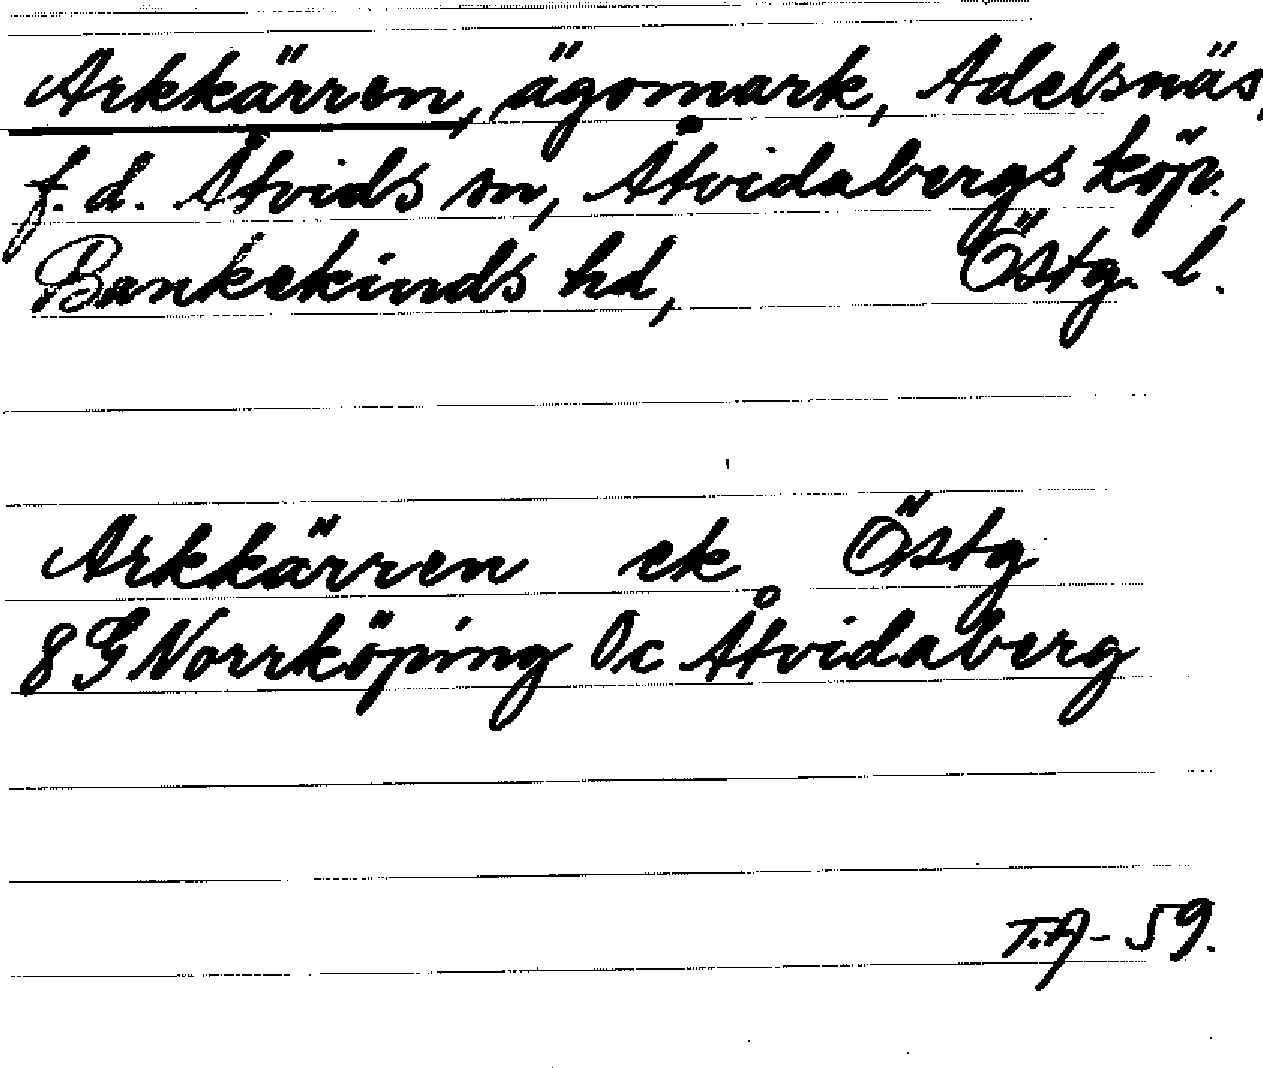 Arkkärren, ägomark, Adelsnäs,
f.d. Åtvids sn, Åtvidabergs köp.,
Bankekinds hd, Östg. l.
Arkkärren ek Östg
8 G Norrköping 0c Åtvidaberg
T.A-59.